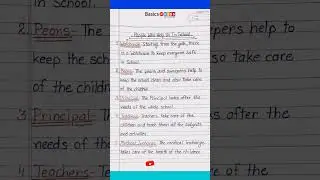 Basics
People Who Help Us In School
1. Watchman:- Starting from the gate, there
is a watchman to keep everyone safe
in School.
2. Peons:- The peons and sweepers help to
keep the school clean and also take care
of the children.
3. Principal:- The Principal looks after the
needs of the whole school.
4. Teachers:- Teachers take care of the
children and teach them all the subjects
and activities.
5. Medical Incharge:- The medical Incharge
takes care of the health of the children.
in School.
2. Peons:- The
keep the sch
of the childre
3. Principal:-
needs of the
4. Teachers:-
pers help to
so take care
s after the